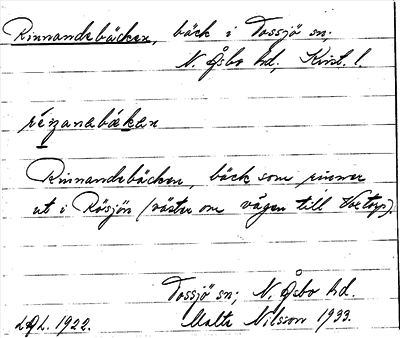 Rinnandebäcken, bäck i Tossjö sn;
N. Åsbo hd, Krist. l.
Rinnandebäcken, bäck som rinner
ut i Rösjön (väster om vägen till
Tossjö sn; N. Åsbo hd.
1922. Malte Nilsson 1933.